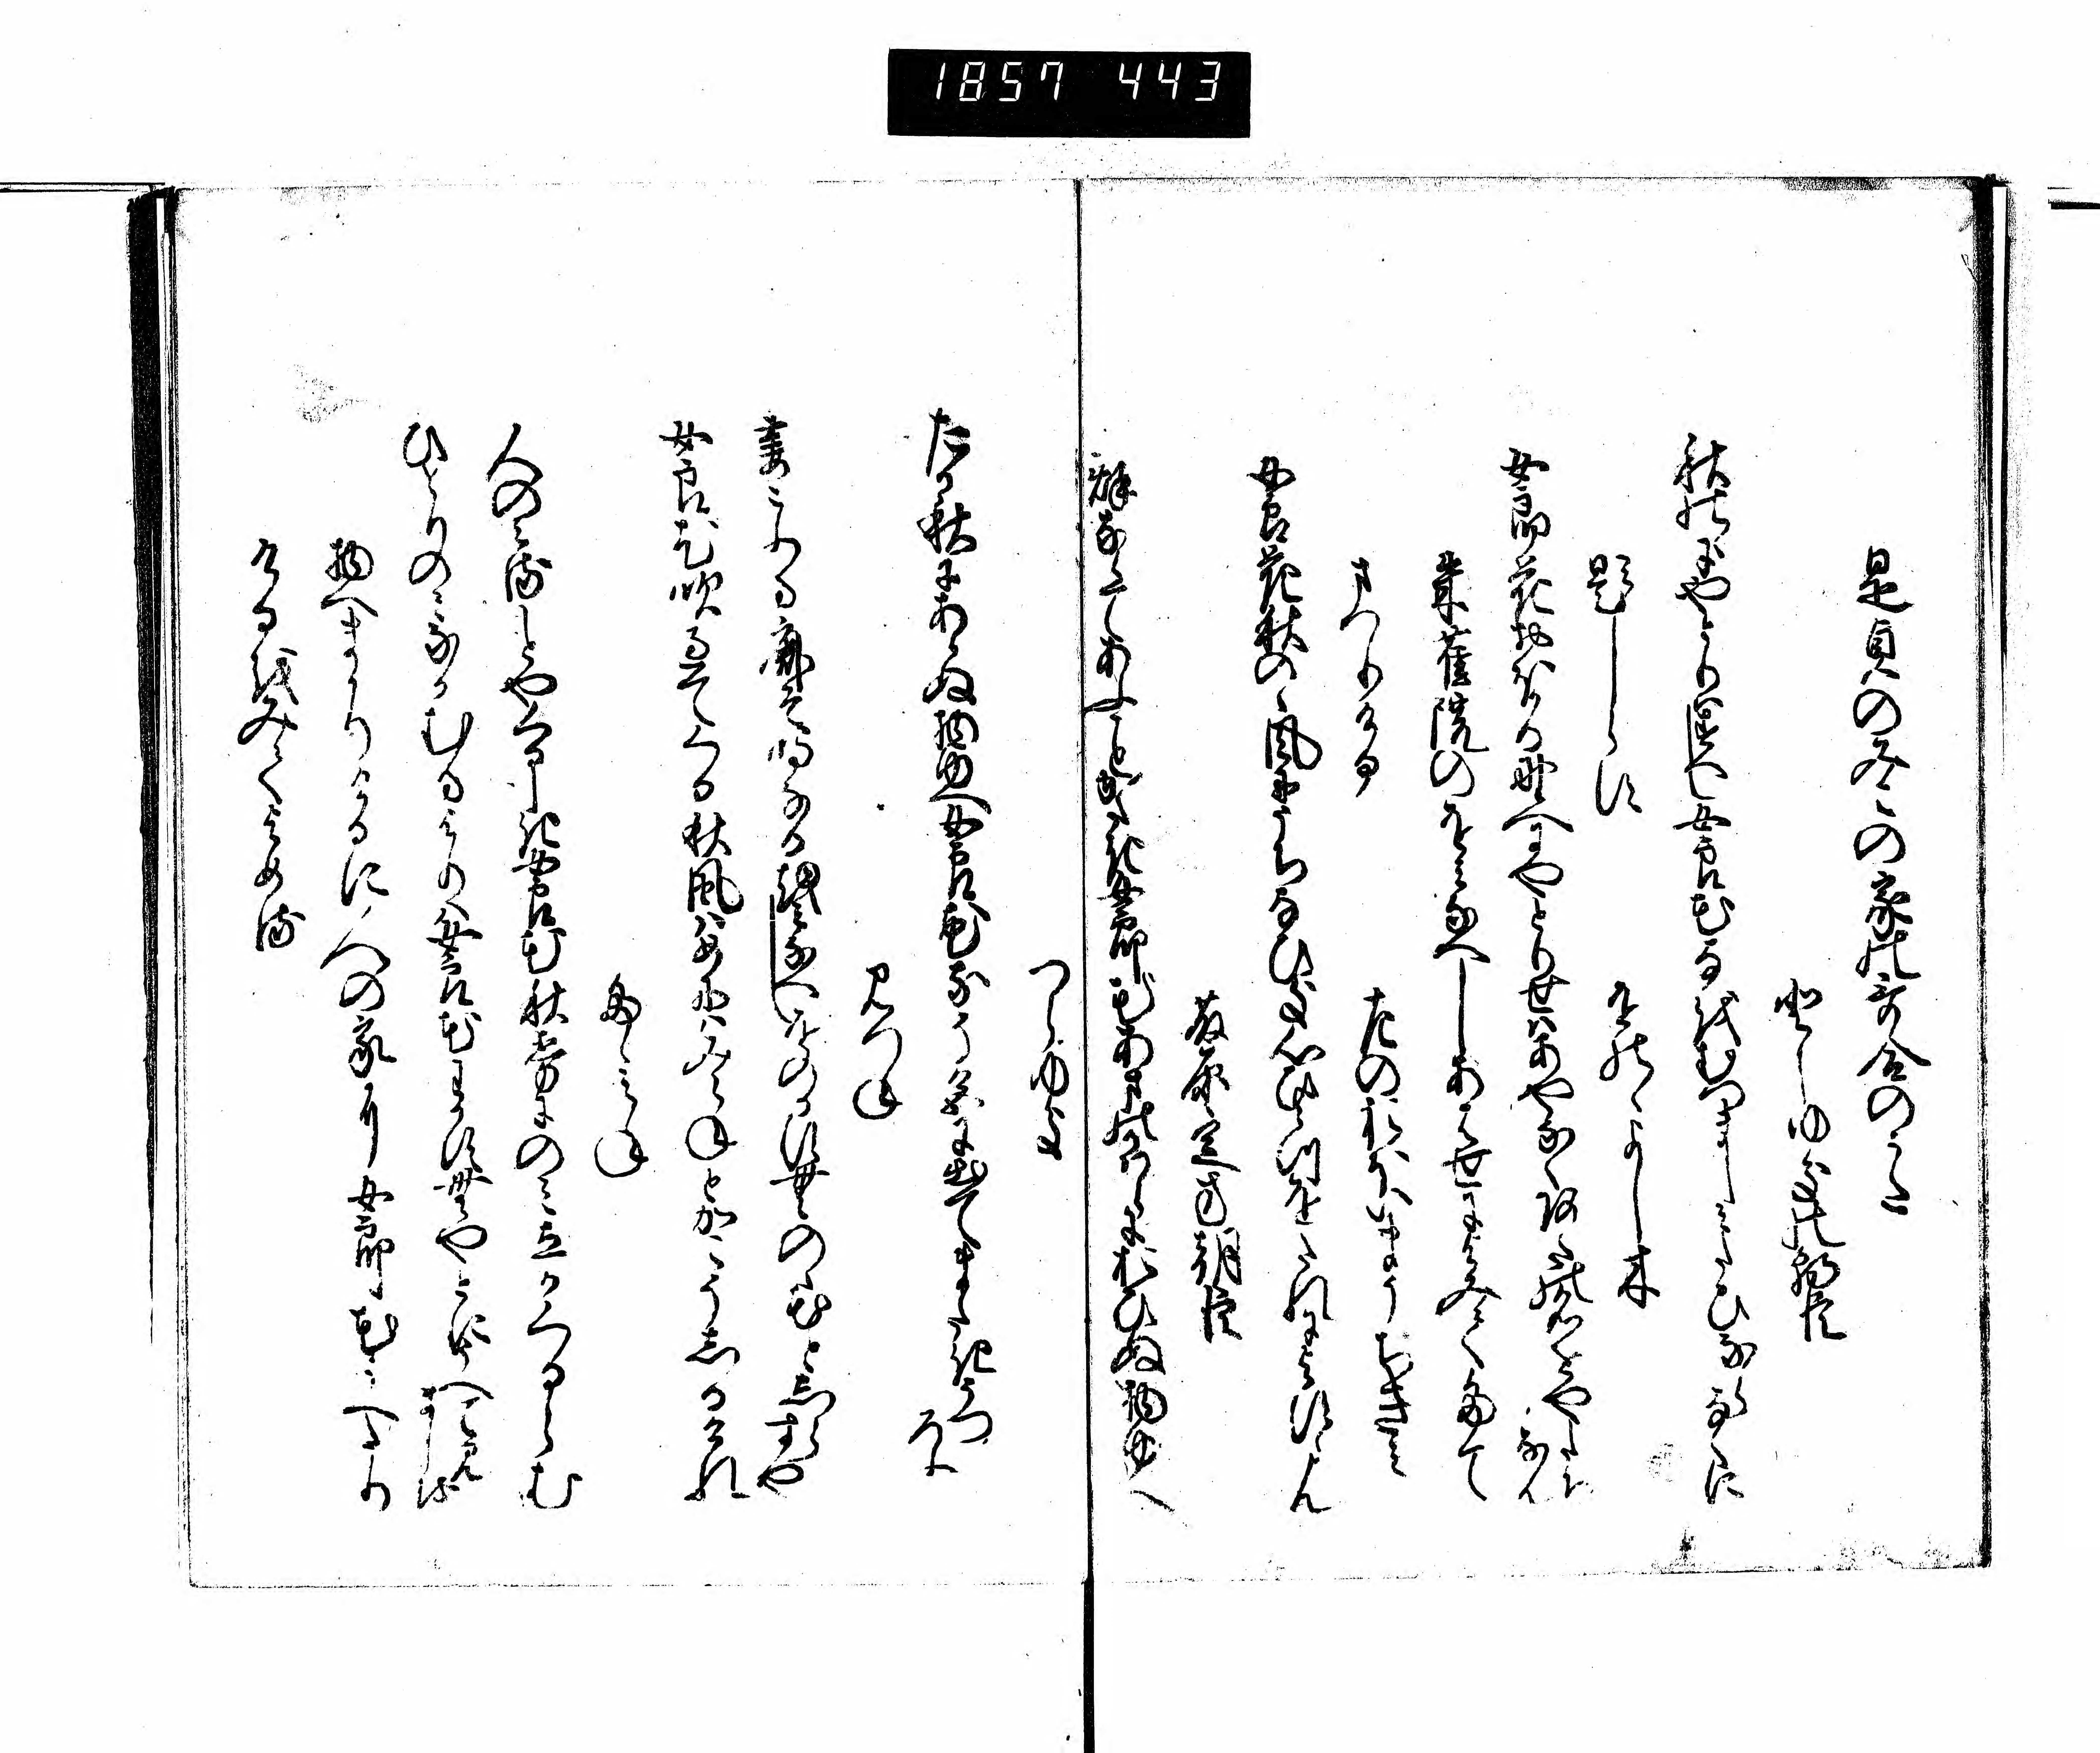 1857 443
是貞のみこの家の哥合のうた
としゆきの朝臣
秋の野にやとりはすへし女郎花名をむつましみたひならなくに
題しらす
をののよし木
女郎花おほかる野へにやとりせはあやなくあたの名をやたちなん
朱雀院のをみなへしあはせによみてたてまつりける
たの おほいまうちきみ
女郎花秋の野風にうちなひき心ひとつをたれによすらん
藤原定方朝臣
秋ならてあふことかたき女郎花あまのかはらにおひぬ物ゆへ
つらゆき
たか秋にあらぬ物ゆへ女郎花なそ色に出てまたきうつろふ
みつね
妻こふる鹿そ鳴なる女郎花をのかすむ野の花としらすや
女郎花吹過てくる秋風はめには見えねとかこそしるけれ
たゝみね
人の見ることやくるしき女郎花秋霧にのみ立かくるらむ
ひとりのみなかむるよりは女郎花我すむやとにうへて見ましを
物へまかりけるに人の家に女郎花うへたり
けるをみてよめる